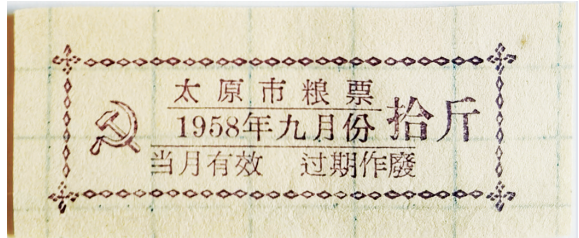 太原市粮票
1958年九月份
拾斤
当月有效 过期作廢